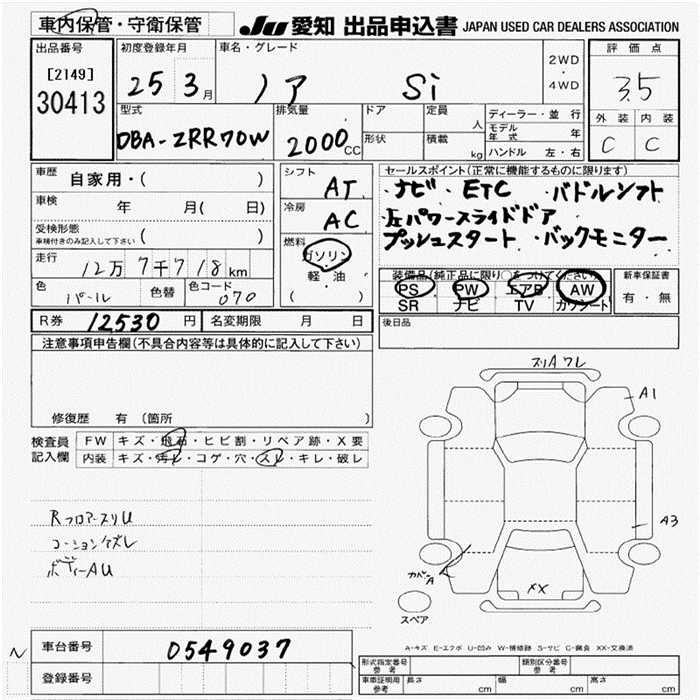 車内保管・守衛保管 JU 愛知 出品申込書 JAPAN USED CAR DEALERS ASSOCIATION
出品番号 初度登録年月 車名・グレード 2WD ・ 4WD 評価点
[2149] 30413 25 3月 ノア Si 3.5
型式 排気量 ドア 定員 人 ディーラー・並行 外装 内装
DBA-ZRR70W 2000CC 形状 積載 kg モデル年式 年 C C
ハンドル 左・右
車歴 自家用・( ) シフト AT セールスポイント(正常に機能するものに限ります)
車検 年 月( 日) 冷房 AC ナビ・ETC ・パドルシフト
受検形態 車検付きのみ記入して下さい ( ) 左パワースライドドア
走行 12万7千718km 燃料 ガソリン 軽・油 ( ) プッシュスタート・バックモニター
色 パール 色替 色コード 070 装備品(純正品に限り○をつけてください) 新車保証書
PS PW エアB AW 有・無
SR ナビ TV カワシート
R券 12530円 名変期限 月 日 後日品
注意事項申告欄(不具合内容等は具体的に記入して下さい)
修復歴 有 (箇所
検査員記入欄 FW キズ・飛石・ヒビ割・リペア跡・X要
内装 キズ・汚れ・コゲ・穴・スレ・キレ・破レ
RフロアースリU
コーションケズレ
ボディーAU
スリA ワレ
A1
A3
カバーA
XX
スペア
A-キズ E-エクボ U-凹み W-補修跡 S-サビ C-腐食 XX-交換済
N 車台番号 0549037
登録番号
型式指定番号 参考 類別区分番号 参考
車庫証明用 参考 長さ cm 幅 cm 高さ cm